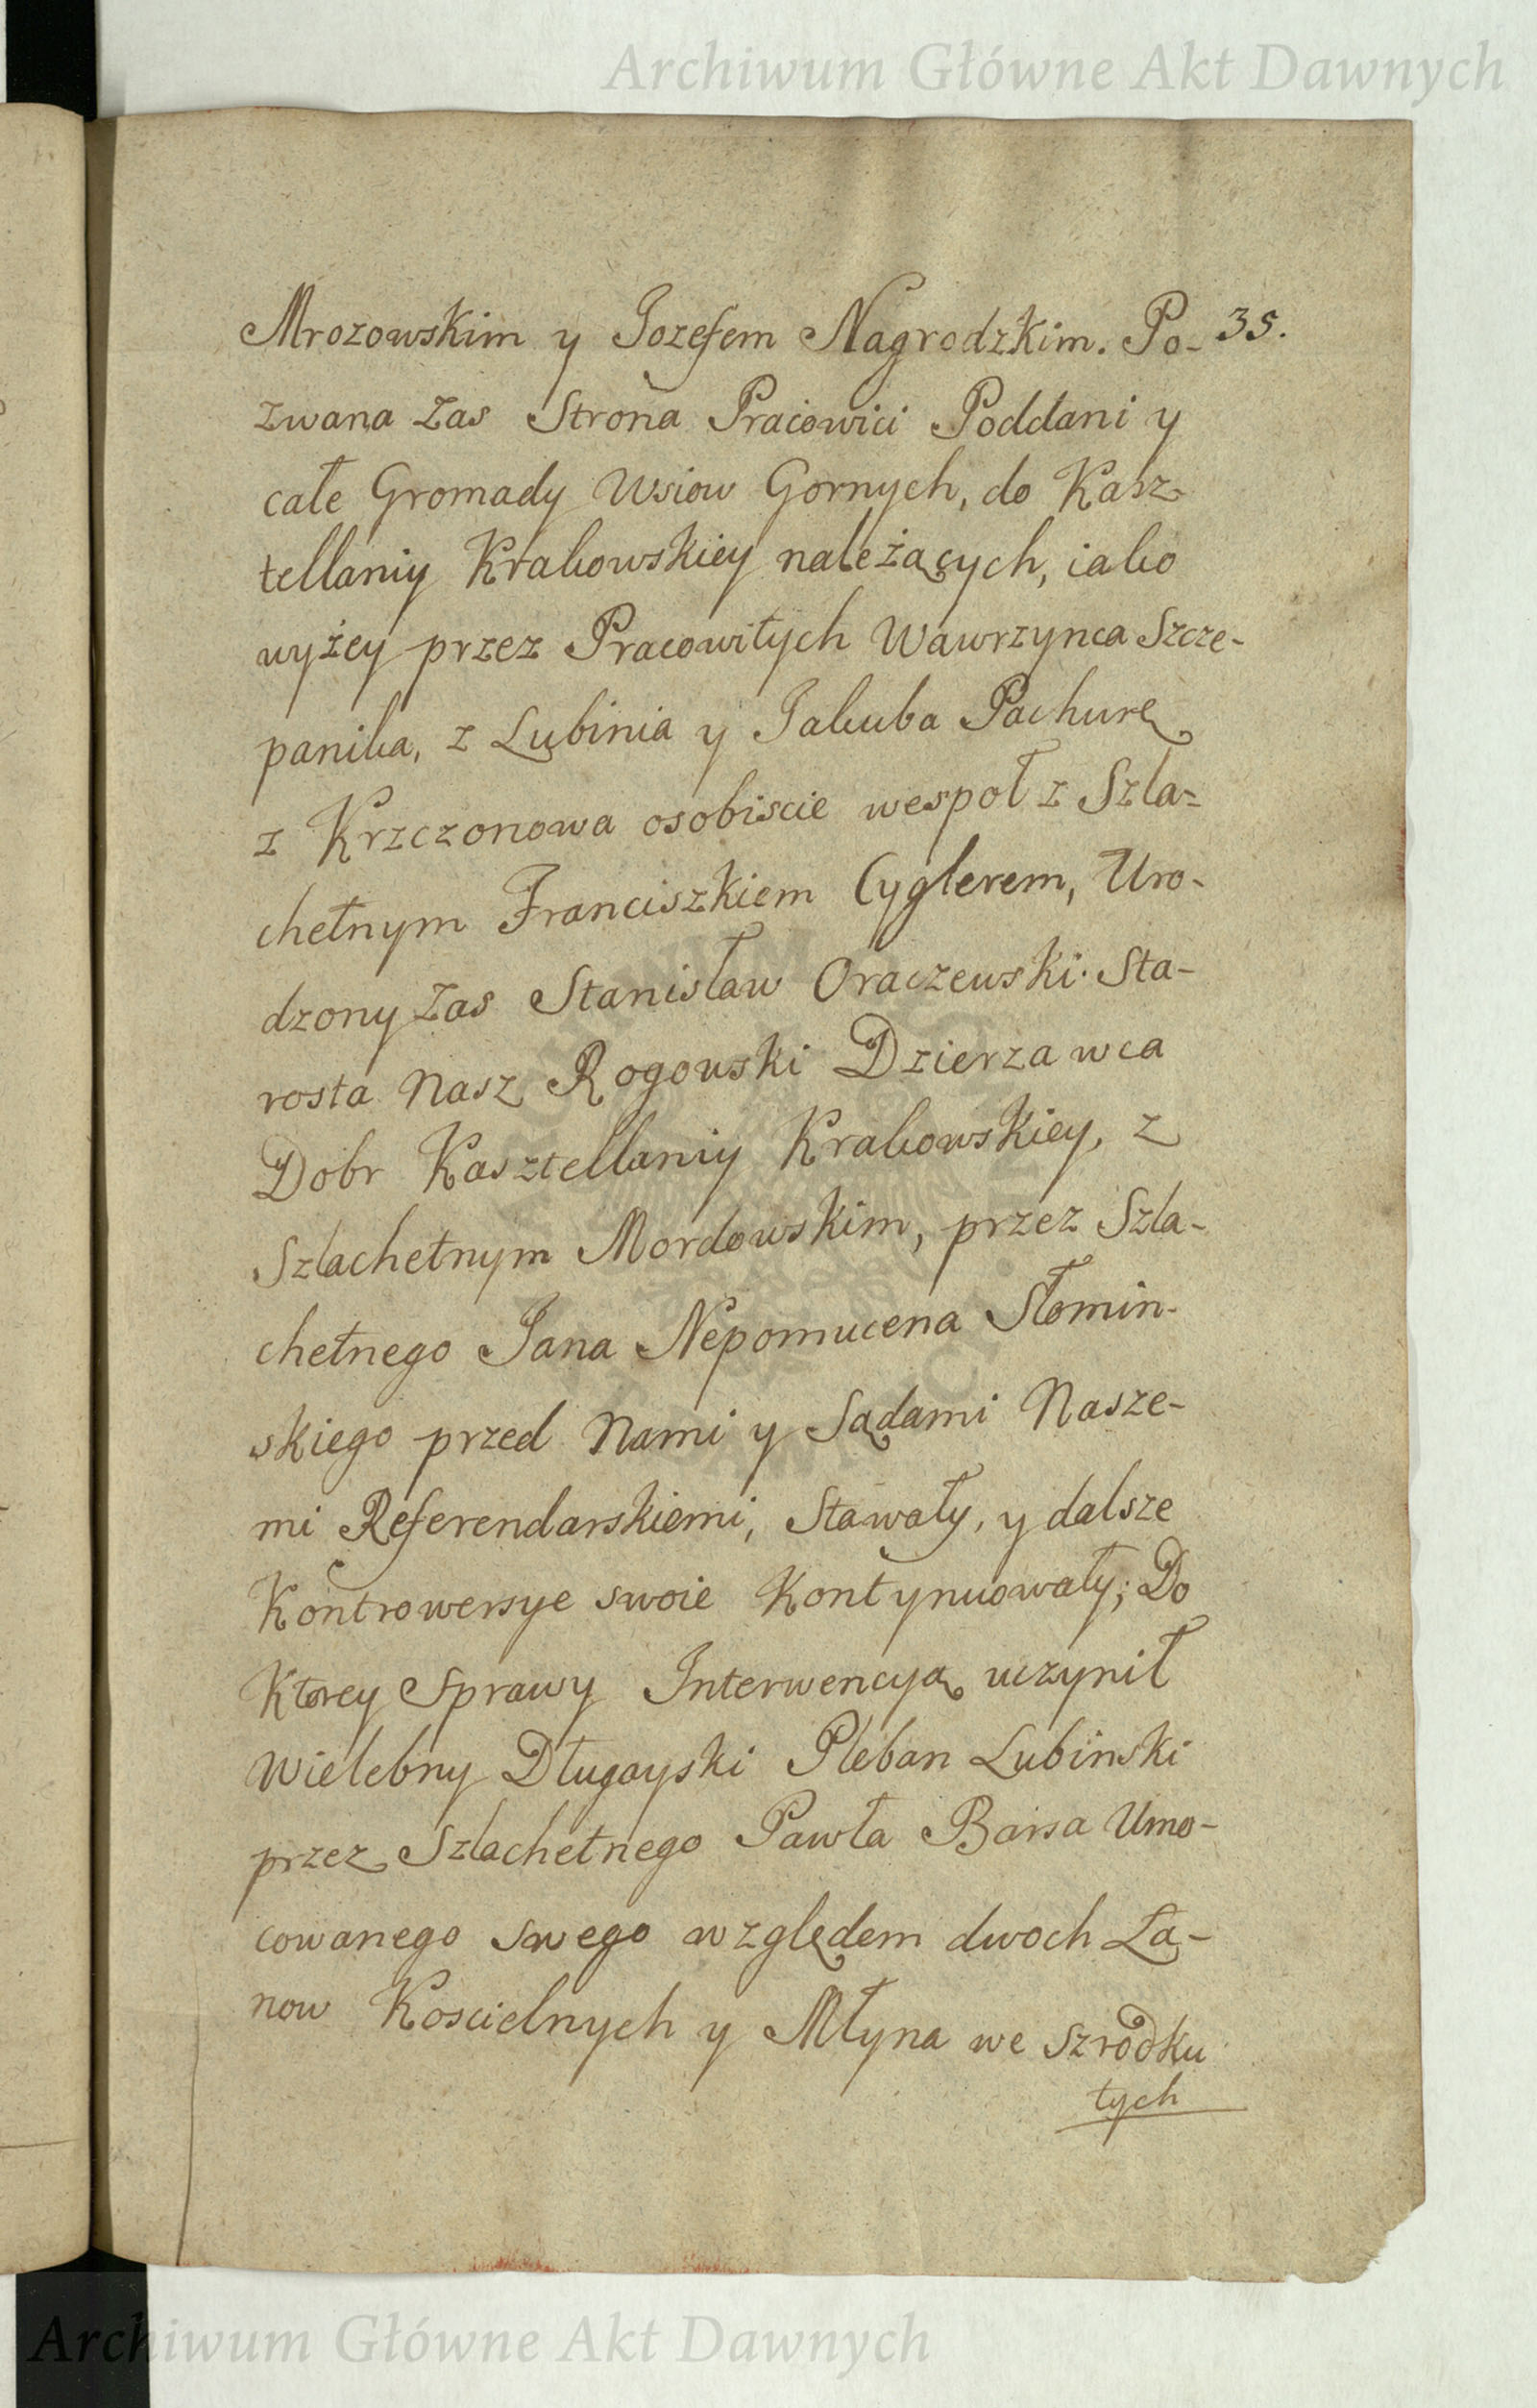 Archiwum Główne Akt Dawnych
Mrozowskim y Jozefem Nagrodzkim. Po- 35.
zwana zas Strona Pracowici Poddani y
całe Gromady Wsiow Gornych, do Kasz-
tellaniy Krakowskiey należących, iako
wyżey przez Pracowitych Wawrzynca Szcze-
panika, z Lubinia y Jakuba Pachurę
z Krzczonowa osobiscie wespoł z Szla-
chetnym Franciszkiem Cyglerem, Uro-
dzony zas Stanisław Oraczewski Sta-
rosta Nasz Rogowski Dzierzawca
Dobr Kasztellaniy Krakowskiey, z
Szlachetnym Mordowskim, przez Szla-
chetnego Jana Nepomucena Słomin-
skiego przed Nami y Sądami Nasze-
mi Referendarskiemi, Stawały, y dalsze
Kontrowersye swoie Kontynuowały; Do
Ktorey Sprawy Interwencyą uczynił
Wielebny Długoyski Pleban Lubinski
przez Szlachetnego Pawła Barsa Umo-
cowanego swego względem dwoch Ła-
now Koscielnych y Młyna we szrodku
tych
Archiwum Główne Akt Dawnych